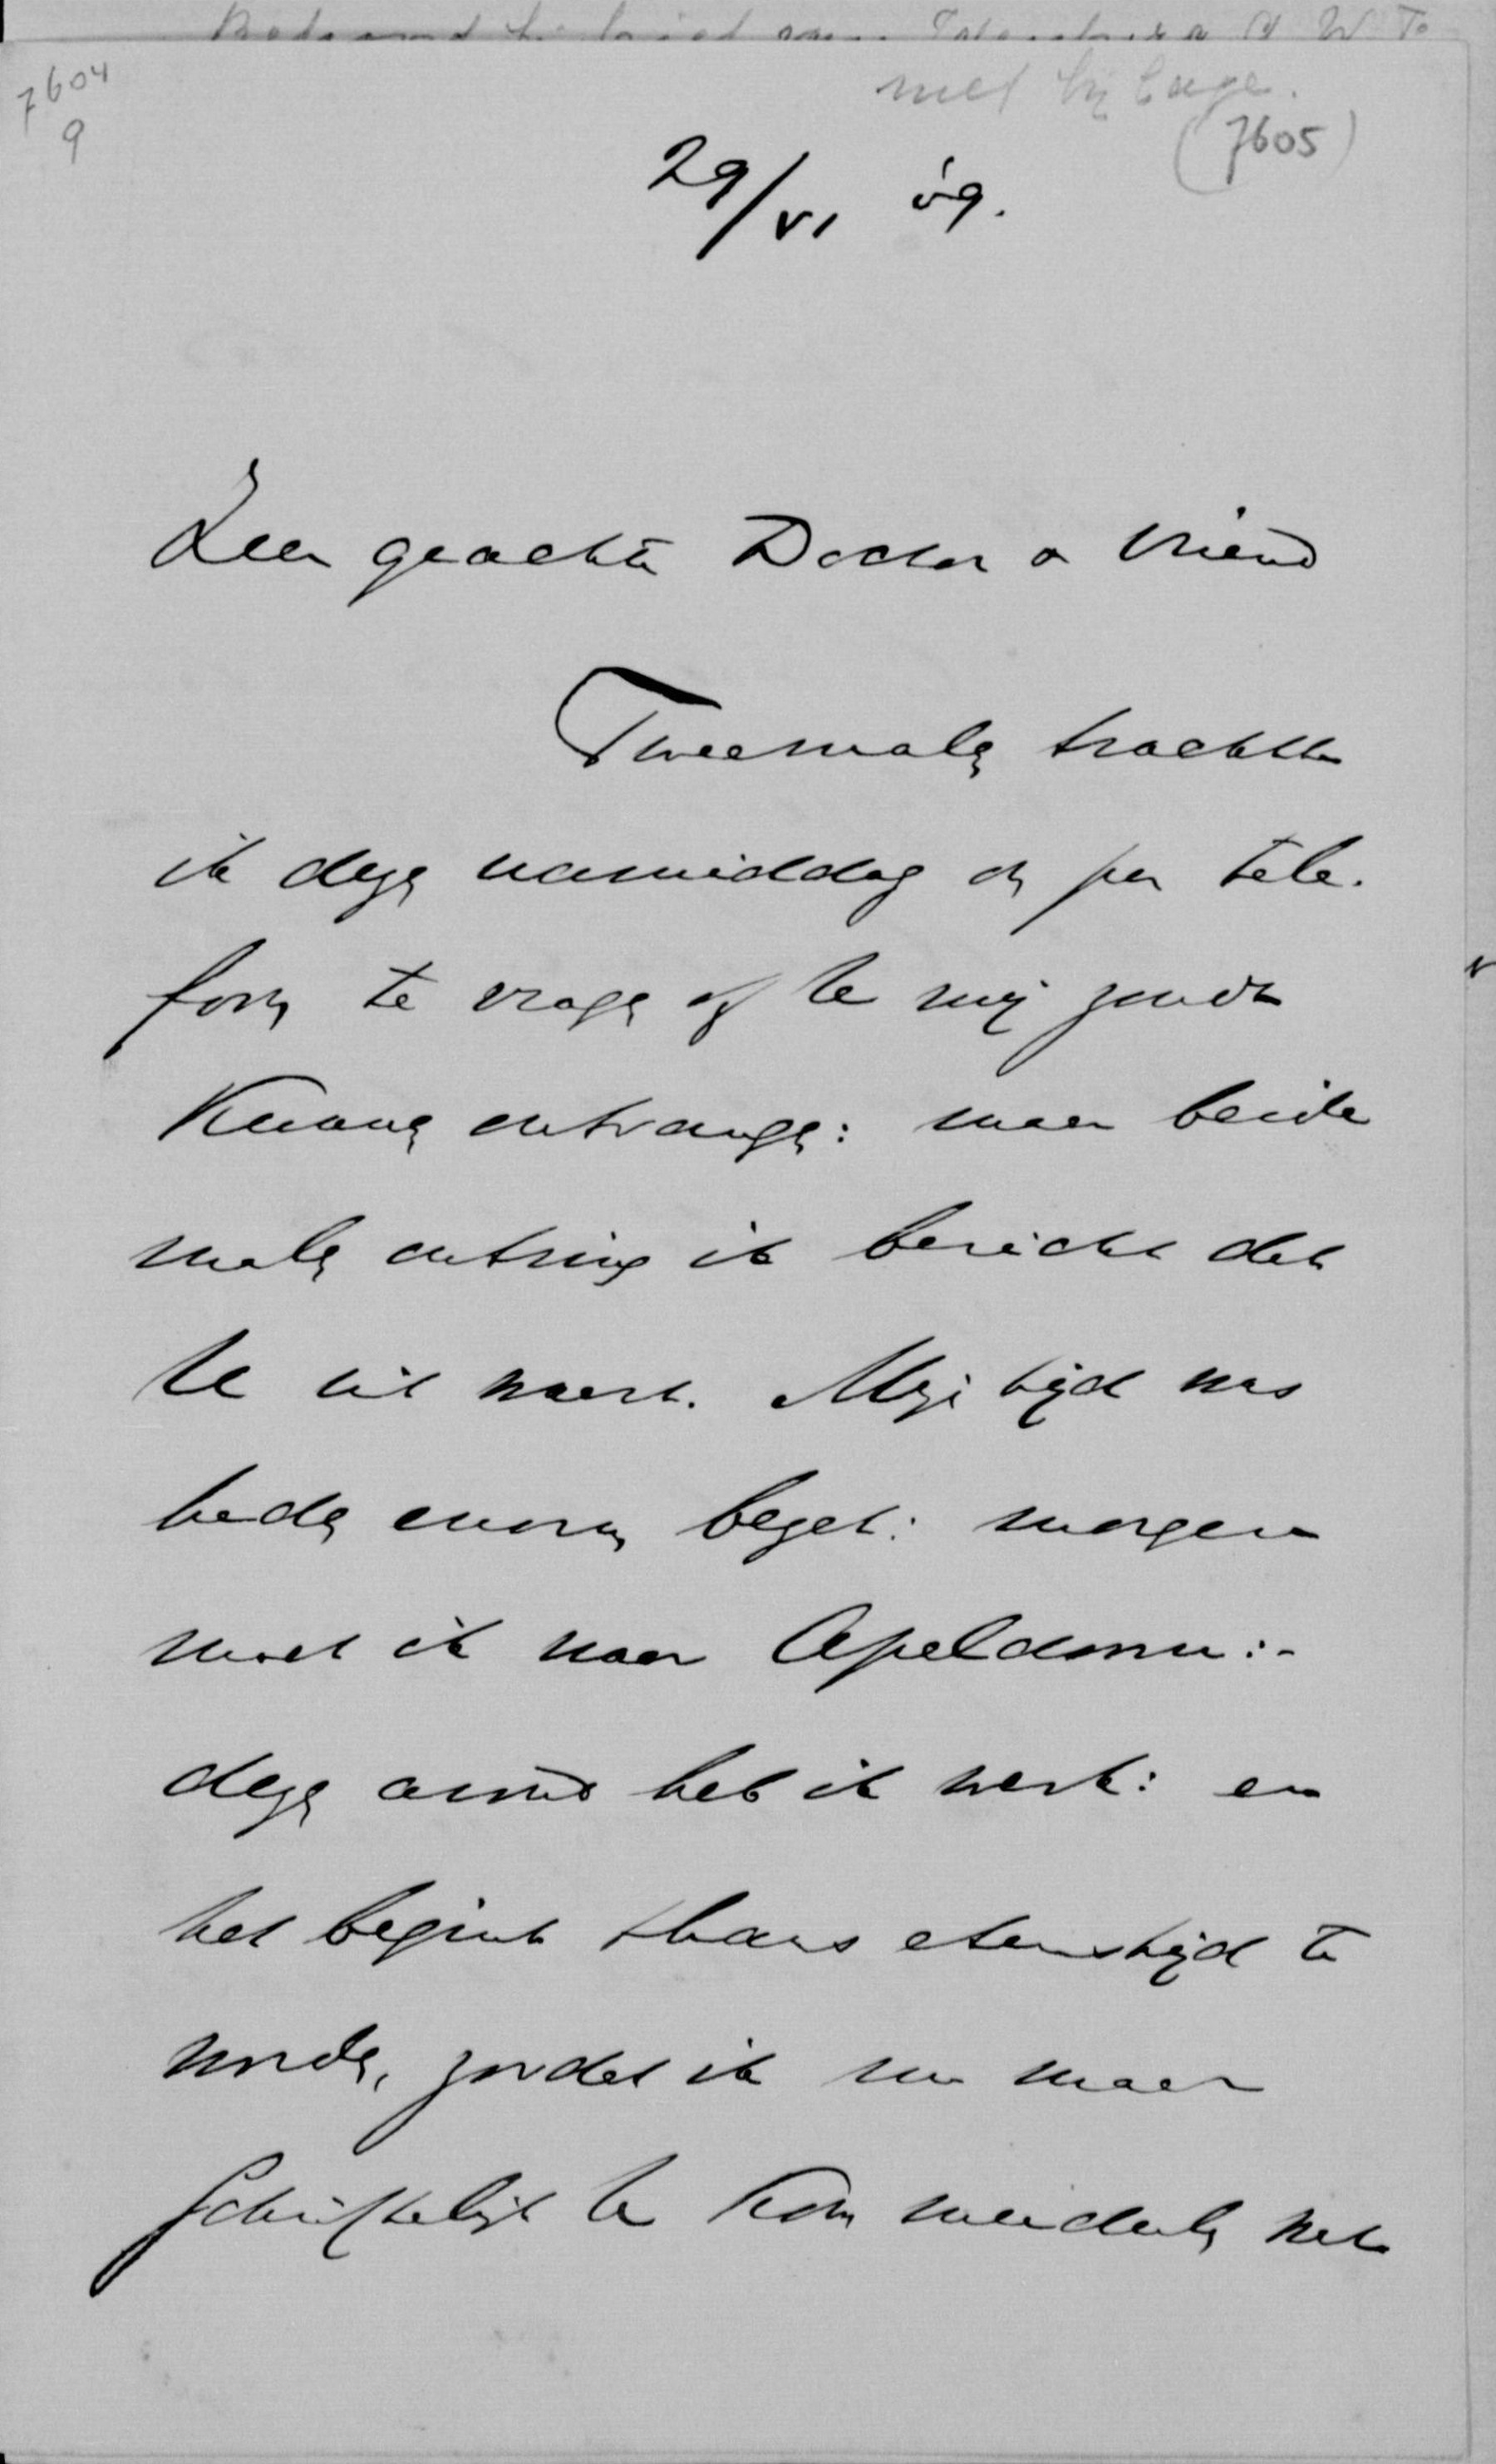 7604
9
met bijlage.
(7605)
29/VI 09.
Zeer geachte Doctor & Vriend
Tweemalen trachtte
ik dezen namiddag U per tele-
foon te vragen of U mij zoudt
kunnen ontvangen: maar beide
malen ontving ik bericht dat
U uit waart. Mijn tijd was
heden enorm bezet: morgen
moet ik naar Apeldoorn:-
dezen avond heb ik werk: en
het begint thans etenstijd te
worden, zoodat ik nu maar
schriftelijk U kom mededeelen wat